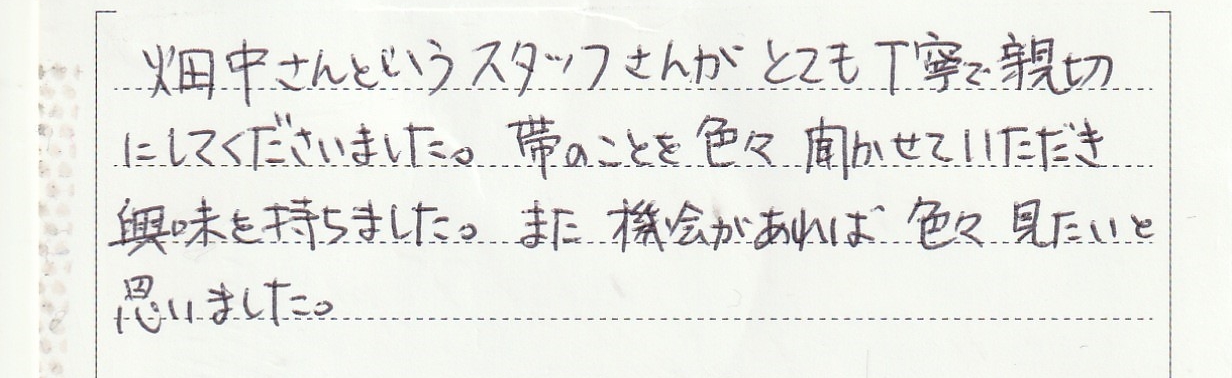 畑中さんというスタッフさんがとても丁寧で親切
にしてくださいました。帯のことを色々聞かせていただき
興味を持ちました。また機会があれば色々見たいと
思いました。